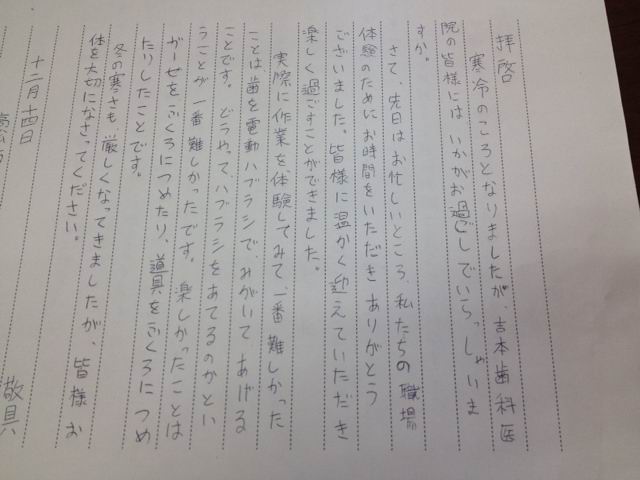 拝啓
寒冷のころとなりましたが、吉本歯科医
院の皆様には いかがお過ごしでいらっしゃいま
すか。
さて、先日は お忙しいところ、私たちの 職場
体験のために お時間をいただき ありがとう
ございました。皆様に温かく迎えていただき
楽しく過ごすことができました。
実際に作業を、体験してみて、一番 難しかった
ことは歯を電動ハブラシで、みがいて あげる
ことです。 どうやって、ハブラシをあてるのかとい
うことが 一番 難しかったです。 楽しかったことは
ガーゼをふくろにつめたり、道具をふくろに つめ
たりしたことです。
冬の寒さも、厳しくなってきましたが、 皆様 お
体を大切になさってください。
敬具
十二月十四日